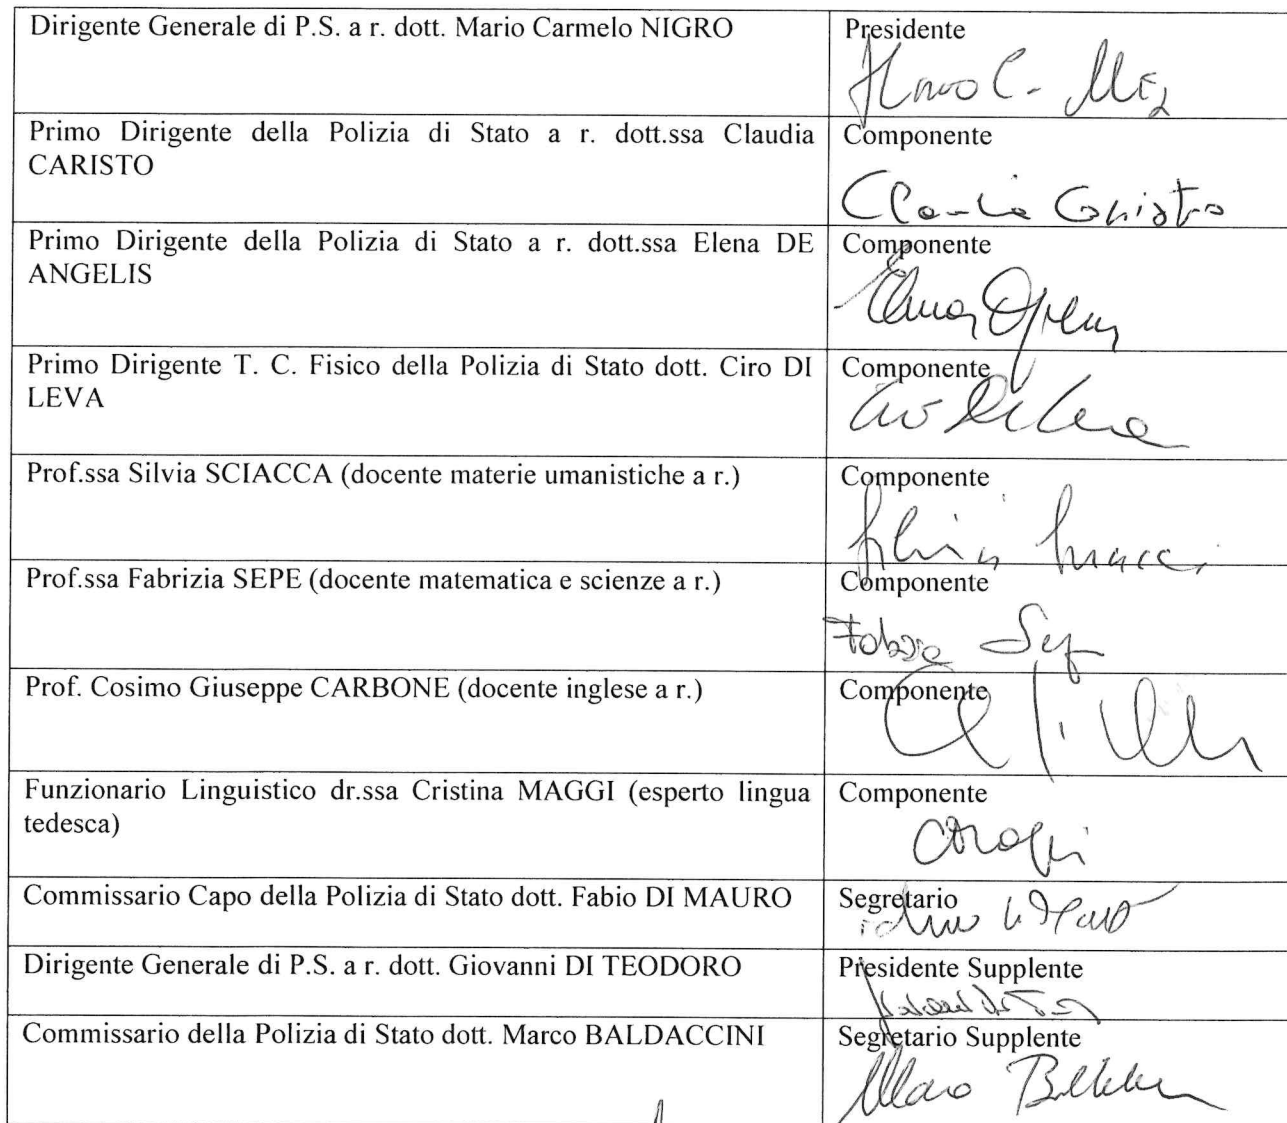 Dirigente Generale di P.S. a r. dott. Mario Carmelo NIGRO
Presidente
Primo Dirigente della Polizia di Stato a r. dott.ssa Claudia
CARISTO
Componente
Claudia Caristo
Primo Dirigente della Polizia di Stato a r. dott.ssa Elena DE
ANGELIS
Componente
Primo Dirigente T. C. Fisico della Polizia di Stato dott. Ciro DI
LEVA
Componente
Prof.ssa Silvia SCIACCA (docente materie umanistiche a r.)
Componente
Prof.ssa Fabrizia SEPE (docente matematica e scienze a r.)
Componente
Prof. Cosimo Giuseppe CARBONE (docente inglese a r.)
Componente
Funzionario Linguistico dr.ssa Cristina MAGGI (esperto lingua
tedesca)
Componente
Commissario Capo della Polizia di Stato dott. Fabio DI MAURO
Segretario
Dirigente Generale di P.S. a r. dott. Giovanni DI TEODORO
Presidente Supplente
Commissario della Polizia di Stato dott. Marco BALDACCINI
Segretario Supplente